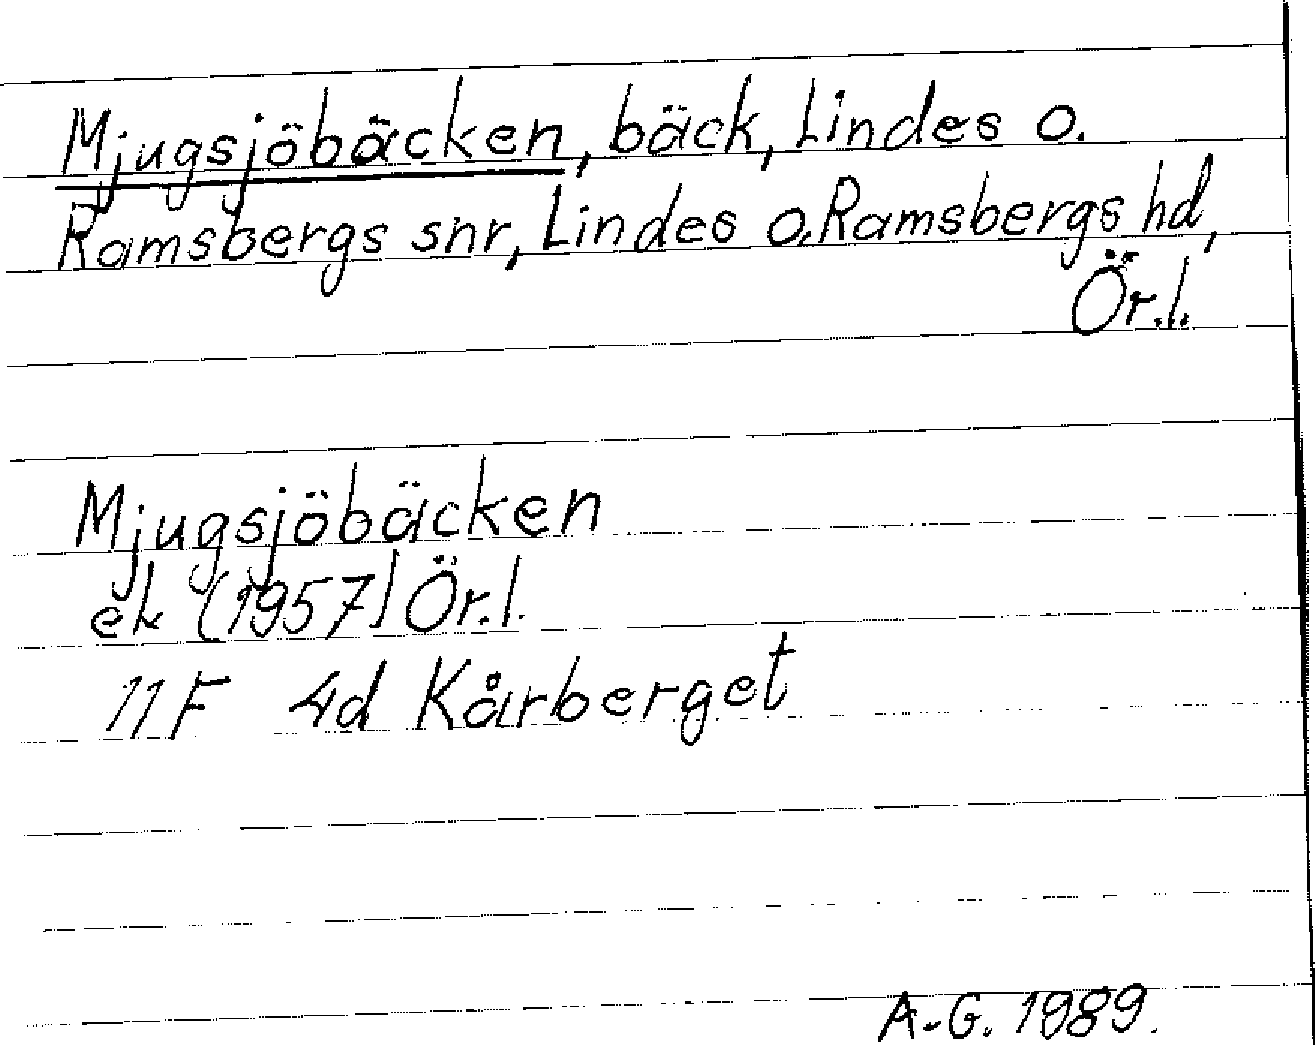 Mjugsjöbäcken, bäck, Lindes o.
Ramsbergs snr, Lindes o. Ramsbergs hd,
Ör.l.
Mjugsjöbäcken
ek (1957) Ör.l.
11F 4d Kårberget
A.-G. 1989.